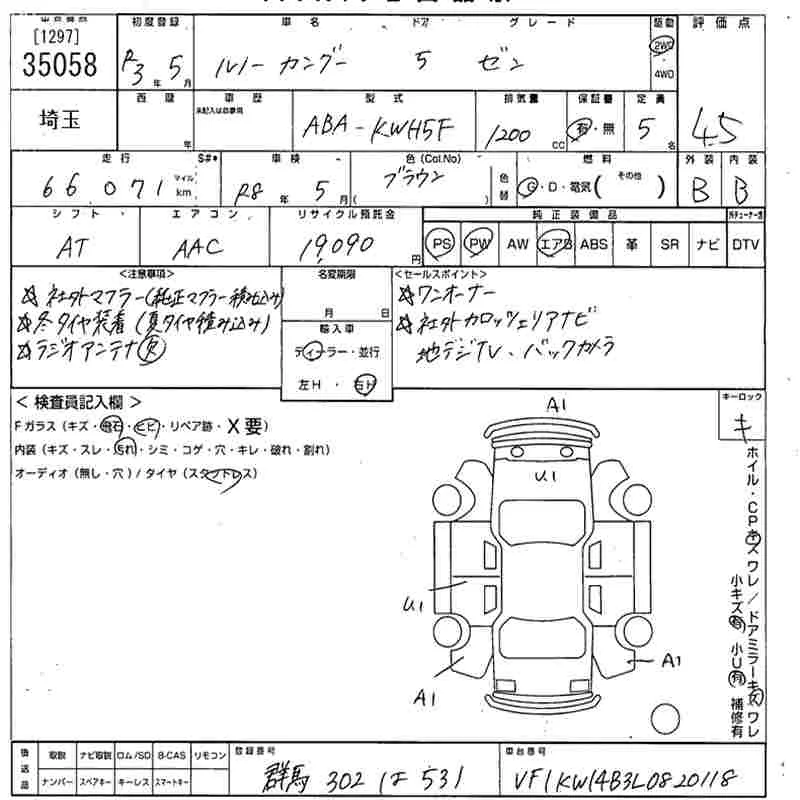 [1297]
35058
埼玉
初度登録 車名 ドア グレード 駆動 評価点
R3年 5月 ルノー カングー 5 ゼン 2WD 4WD
西暦 車歴 型式 排気量 保証書 定員
未記入は自家用
ABA-KWH5F 1200cc 有・無 5名 4.5
走行 S#* 車検 色(Col.No) 色替 燃料 外装 内装
66,071 マイル km R8年 5月 ブラウン ( ) G・D・電気( その他 ) B B
シフト エアコン リサイクル預託金 純正装備品
AT AAC 19,090円 PS PW AW エアB ABS 革 SR ナビ DTV
<注意事項> 名変期限 <セールスポイント>
☆社外マフラー(純正マフラー積み込み)
☆冬タイヤ装着(夏タイヤ積み込み)
☆ラジオアンテナ欠
月 日
輸入車
ディーラー・並行
左H・右H
☆ワンオーナー
☆社外カロッツェリアナビ
地デジTV、バックカメラ
<検査員記入欄>
Fガラス(キズ・飛石・ヒビ・リペア跡・X要)
内装(キズ・スレ・汚れ・シミ・コゲ・穴・キレ・破れ・割れ)
オーディオ(無し・穴)/タイヤ(スタッドレス)
キーロック
キ
A1
U1
U1
A1
A1
ホイル・CPキズワレ/ドアミラーキズワレ
小キズ有 小U有 補修有
後送品 取説 ナビ取説 ロム/SD B-CAS リモコン
ナンバー スペアキー キーレス スマートキー
登録番号
群馬 302 は 531
車台番号
VF1KW14B3L0820118